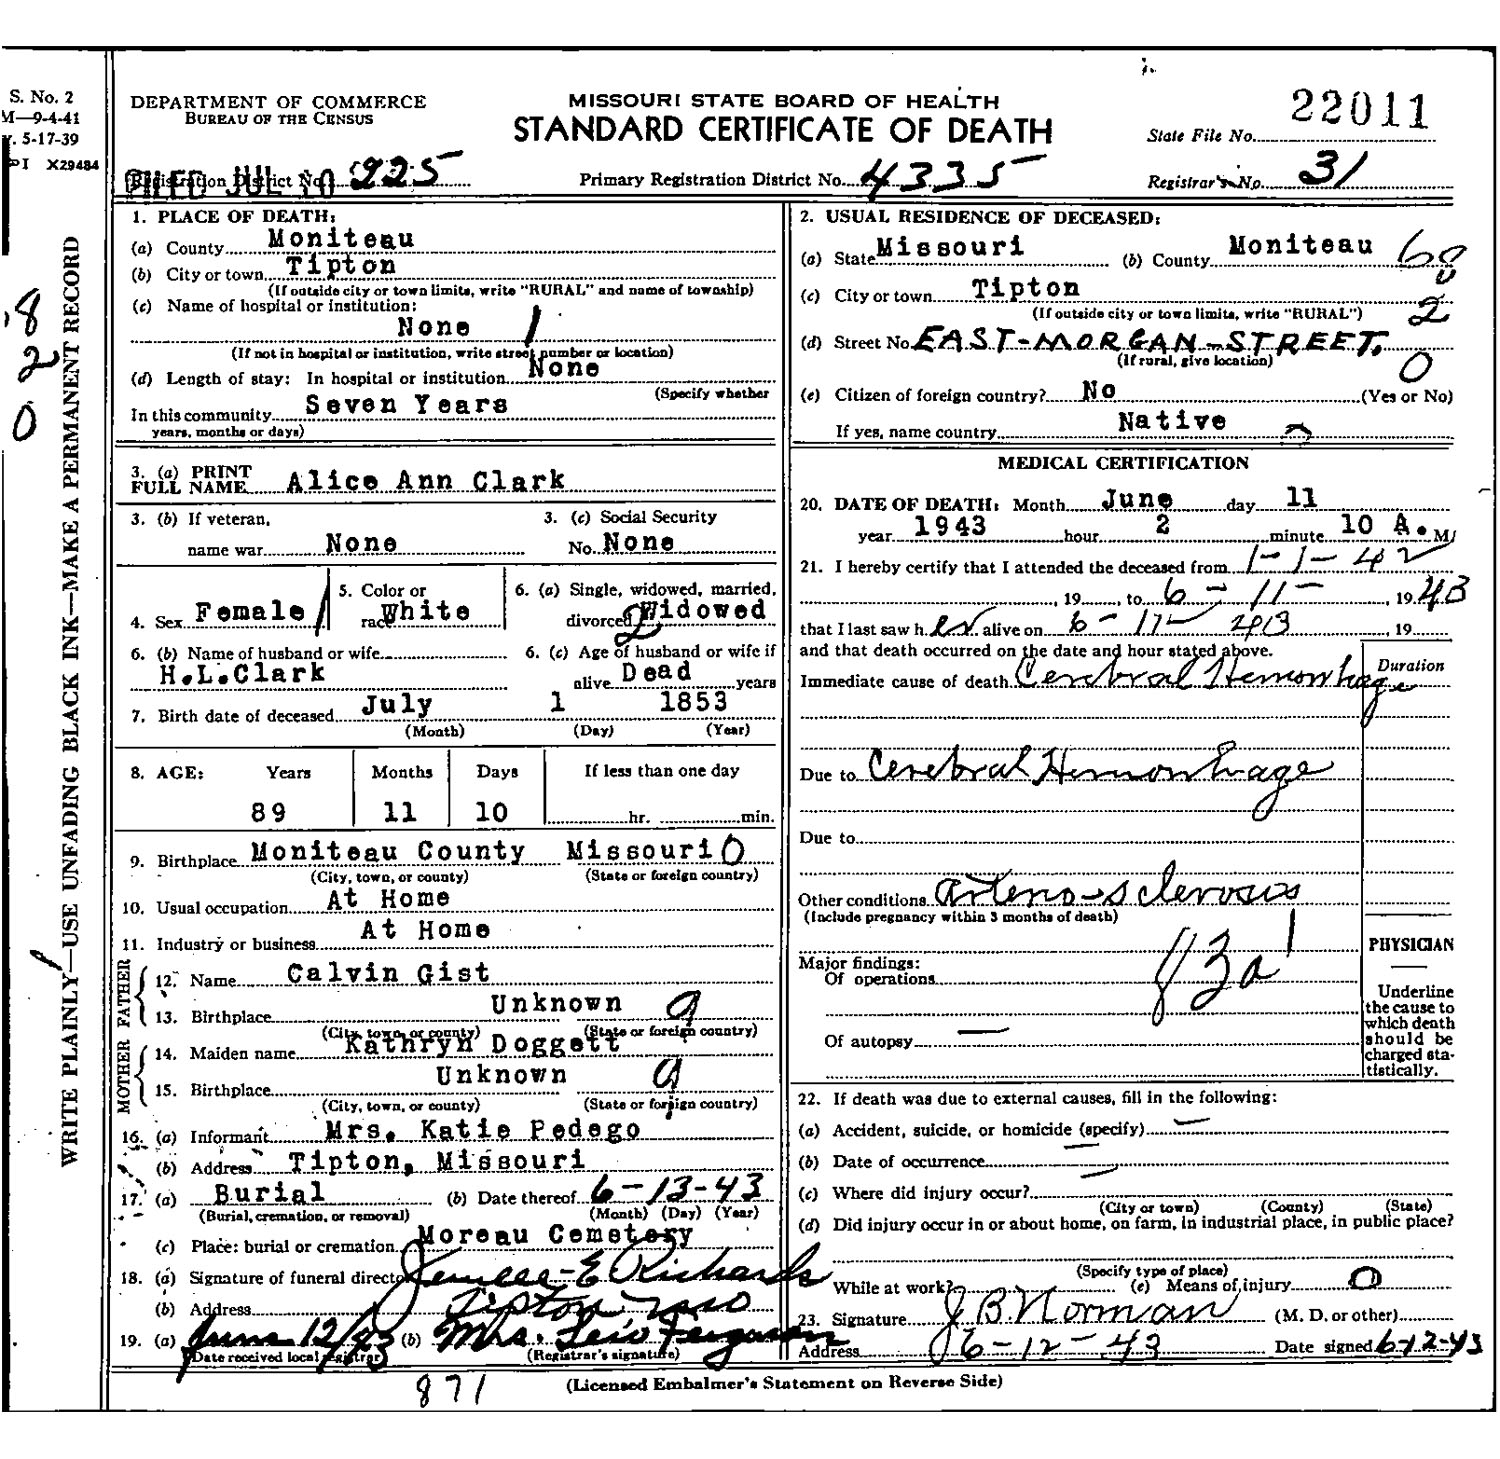 S. No. 2
M—9-4-41
. 5-17-39
PI X29484
DEPARTMENT OF COMMERCE
BUREAU OF THE CENSUS
MISSOURI STATE BOARD OF HEALTH
STANDARD CERTIFICATE OF DEATH
State File No. 22011
FILED JUL 10
Registration District No. 225
Primary Registration District No. 4335
Registrar's No. 31
WRITE PLAINLY—USE UNFADING BLACK INK—MAKE A PERMANENT RECORD
8
2
0
1. PLACE OF DEATH:
(a) County Moniteau
(b) City or town Tipton
(If outside city or town limits, write "RURAL" and name of township)
(c) Name of hospital or institution:
None
(If not in hospital or institution, write street number or location)
(d) Length of stay: In hospital or institution None
(Specify whether
In this community Seven Years
years, months or days)
2. USUAL RESIDENCE OF DECEASED:
(a) State Missouri (b) County Moniteau
(c) City or town Tipton 2
(If outside city or town limits, write "RURAL")
(d) Street No. EAST-MORGAN-STREET.
(If rural, give location) 0
(e) Citizen of foreign country? No (Yes or No)
If yes, name country Native
3. (a) PRINT
FULL NAME Alice Ann Clark
3. (b) If veteran,
name war None
3. (c) Social Security
No. None
4. Sex Female
5. Color or
race White
6. (a) Single, widowed, married,
divorced Widowed
2
6. (b) Name of husband or wife
H.L.Clark
6. (c) Age of husband or wife if
alive Dead years
7. Birth date of deceased July 1 1853
(Month) (Day) (Year)
8. AGE: Years Months Days If less than one day
89 11 10 hr. min.
9. Birthplace Moniteau County Missouri 0
(City, town, or county) (State or foreign country)
10. Usual occupation At Home
11. Industry or business At Home
FATHER
12. Name Calvin Gist
13. Birthplace Unknown 9
(City, town, or county) (State or foreign country)
MOTHER
14. Maiden name Kathryn Doggett
15. Birthplace Unknown 9
(City, town, or county) (State or foreign country)
16. (a) Informant Mrs. Katie Pedego
(b) Address Tipton, Missouri
17. (a) Burial (b) Date thereof 6-13-43
(Burial, cremation, or removal) (Month) (Day) (Year)
(c) Place: burial or cremation Moreau Cemetery
18. (a) Signature of funeral director E Richards
(b) Address Tipton Mo
19. (a) June 12/43 (b) Mrs. Ferguson
(Date received local registrar) (Registrar's signature)
MEDICAL CERTIFICATION
20. DATE OF DEATH: Month June day 11
year 1943 hour 2 minute 10 A. M.
21. I hereby certify that I attended the deceased from 1-1-42
, 19 , to 6-11- , 1943
that I last saw her alive on 6-11- , 19
and that death occurred on the date and hour stated above.
Duration
Immediate cause of death Cerebral Hemorrhage
Due to Cerebral Hemorrhage
Due to
Other conditions Arterio-sclerosis
(Include pregnancy within 3 months of death)
Major findings:
Of operations
83a
Of autopsy —
PHYSICIAN
Underline
the cause to
which death
should be
charged sta-
tistically.
22. If death was due to external causes, fill in the following:
(a) Accident, suicide, or homicide (specify) —
(b) Date of occurrence —
(c) Where did injury occur? —
(City or town) (County) (State)
(d) Did injury occur in or about home, on farm, in industrial place, in public place?
(Specify type of place)
While at work? (e) Means of injury 0
23. Signature J B Norman (M. D. or other)
Address 6-12-43 Date signed 6-12-43
871
(Licensed Embalmer's Statement on Reverse Side)